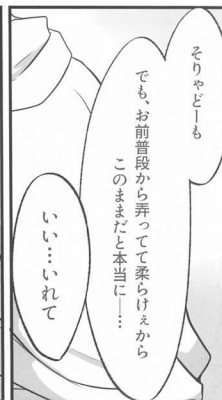 そりゃどーも
でも、お前普段から弄ってて柔らけぇから
このままだと本当に――…
いい…いれて